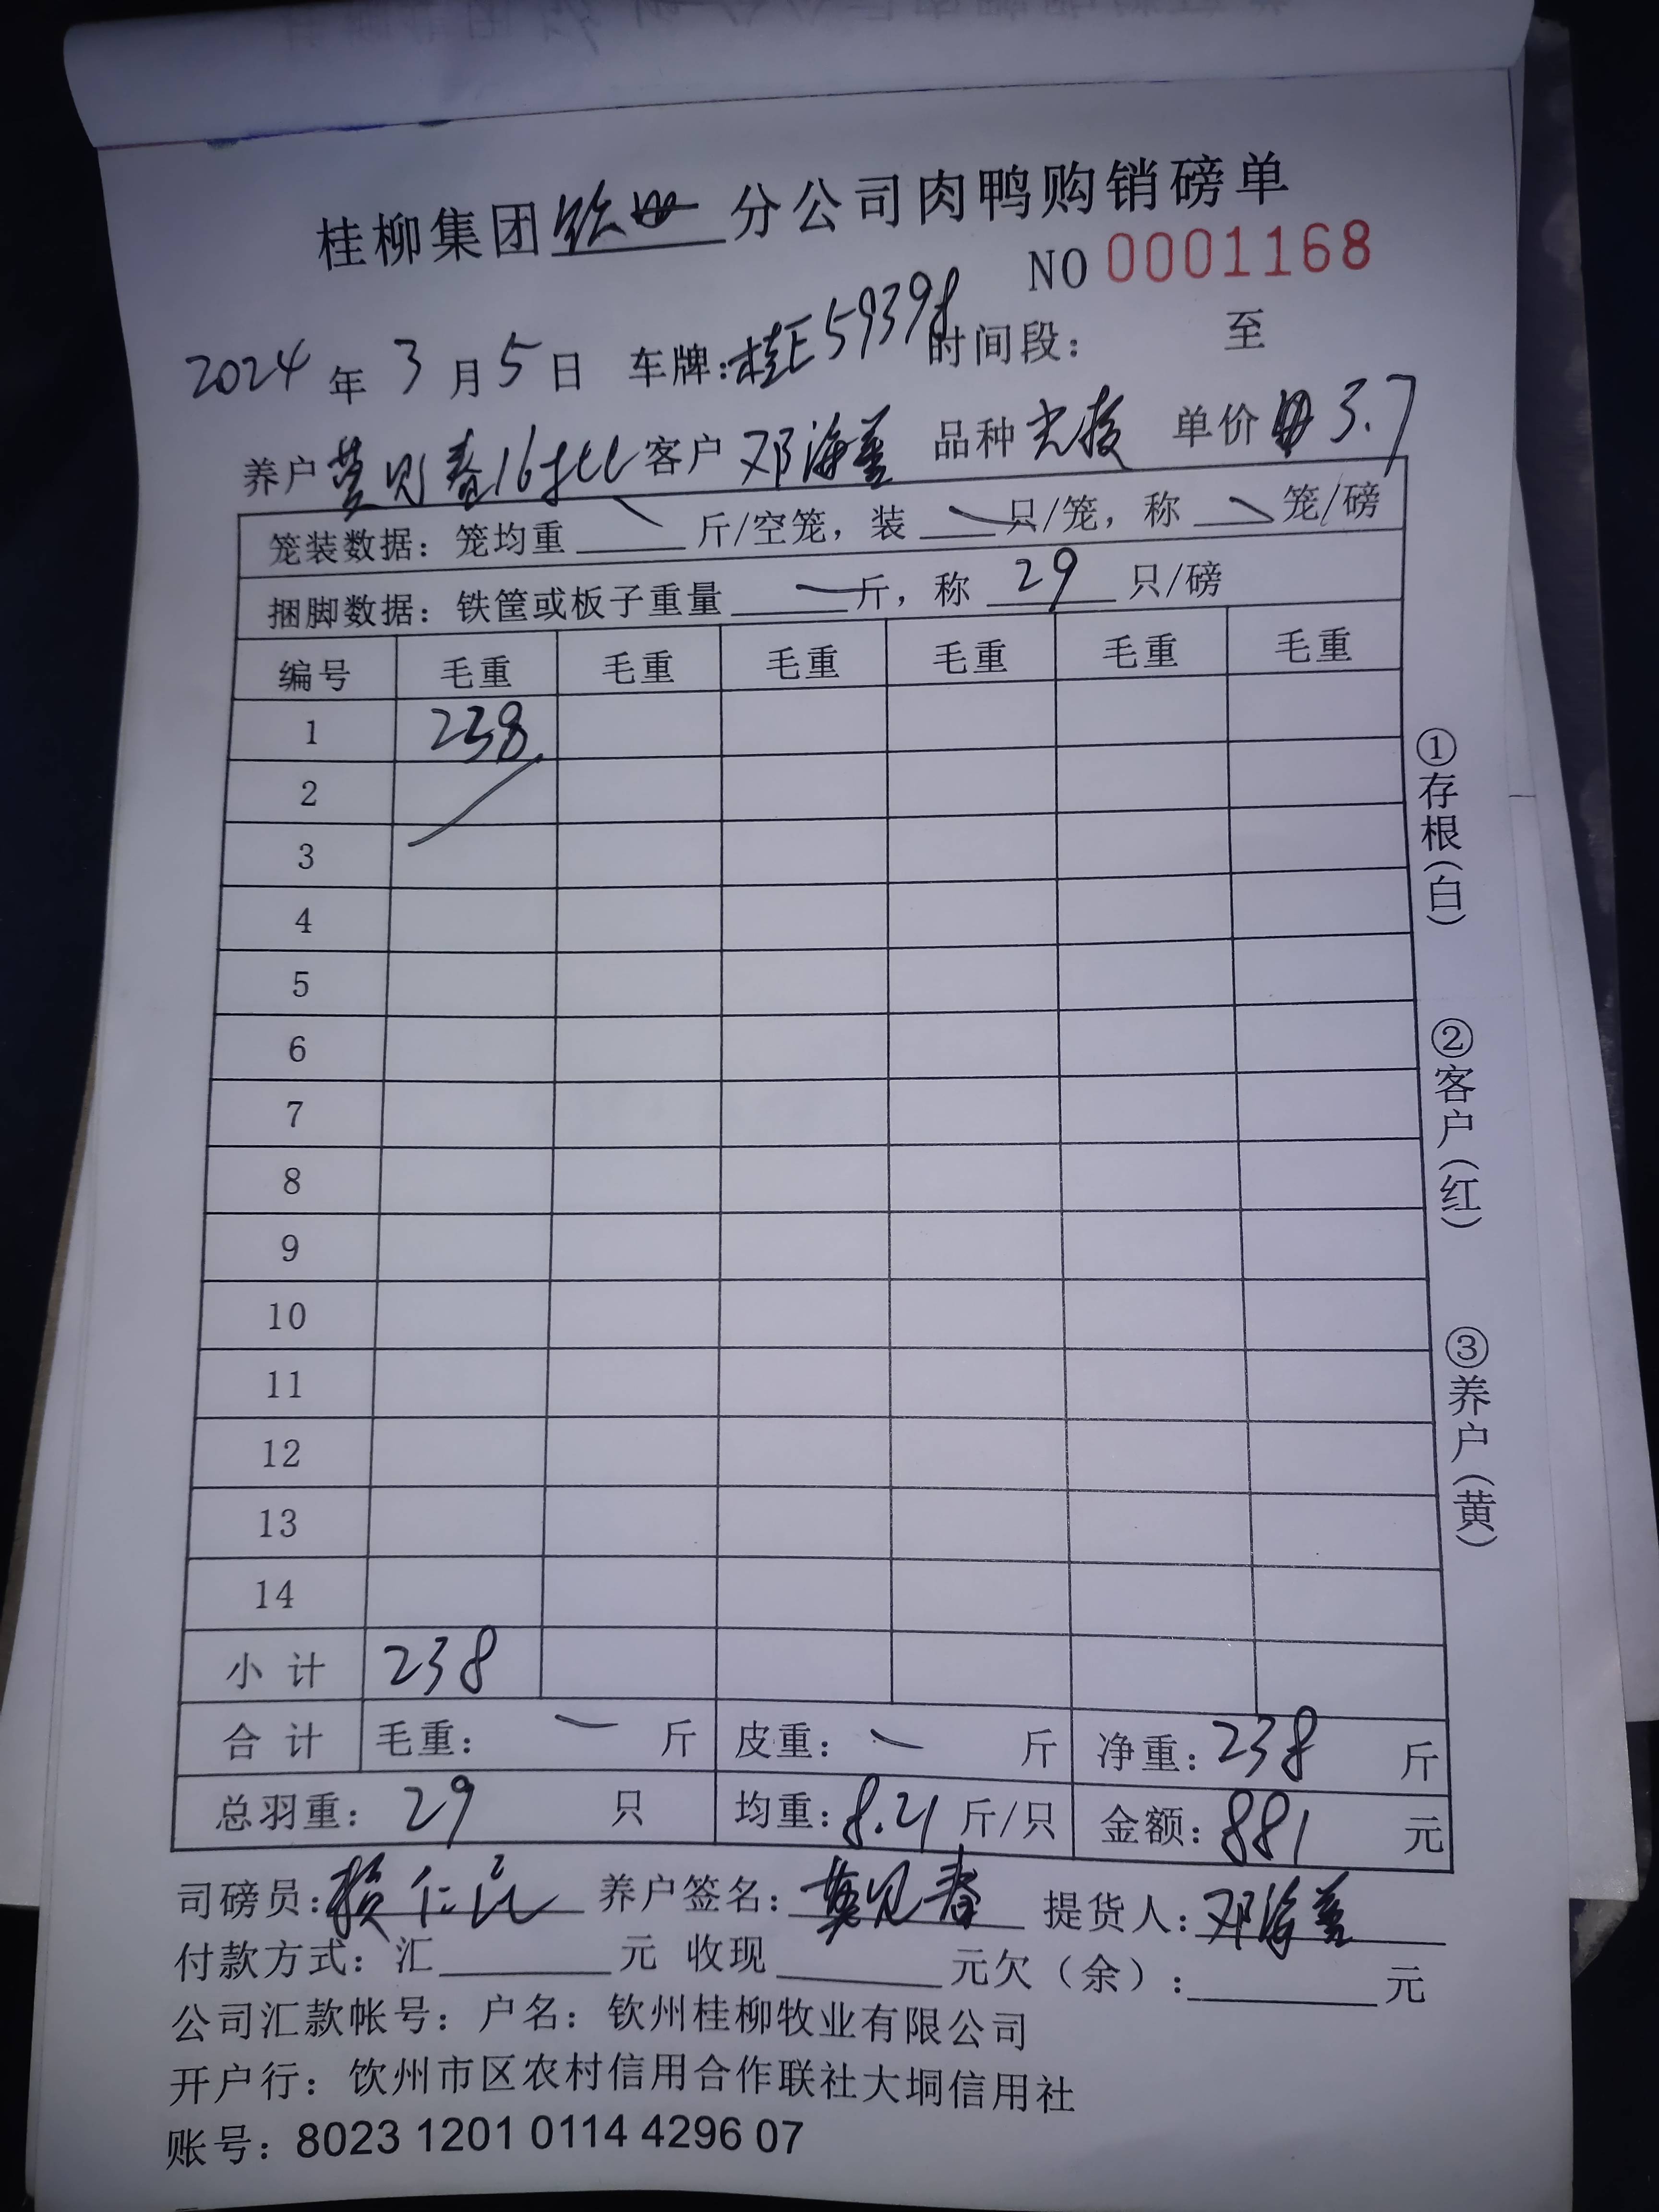 桂柳集团钦州分公司肉鸭购销磅单
NO 0001168
2024年3月5日 车牌:桂E59398 时间段: 至
养户 莫见春16 客户 邓海 品种 单价 3.7
笼装数据: 笼均重 斤/空笼, 装 只/笼, 称 笼/磅
捆脚数据: 铁筐或板子重量 一 斤, 称 29 只/磅
编号 毛重 毛重 毛重 毛重 毛重 毛重
1 238
2
3
4
5
6
7
8
9
10
11
12
13
14
小计 238
合计 毛重: 一 斤 皮重: 一 斤 净重: 238 斤
总羽重: 29 只 均重: 8.21 斤/只 金额: 881 元
司磅员: 养户签名: 莫见春 提货人: 邓海
付款方式: 汇 元 收现 元欠(余): 元
公司汇款帐号: 户名: 钦州桂柳牧业有限公司
开户行: 钦州市区农村信用合作联社大垌信用社
账号: 8023 1201 0114 4296 07
①存根(白)
②客户(红)
③养户(黄)